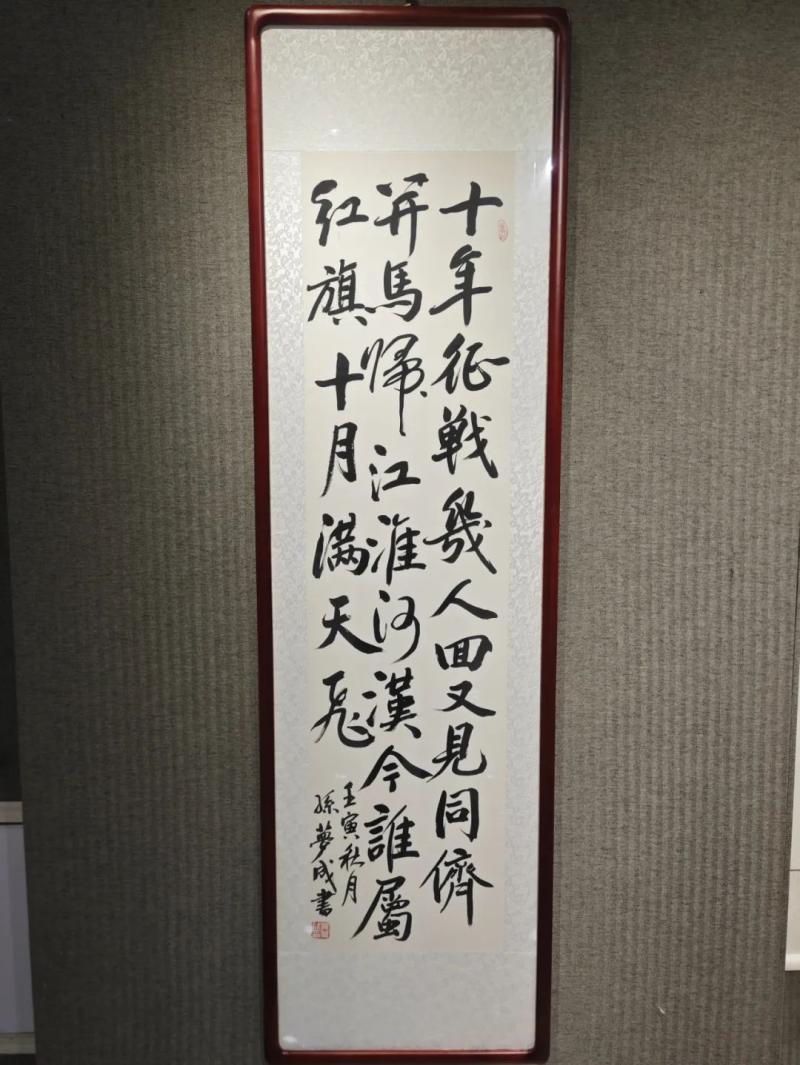 十年征戰幾人回又見同儕
并馬歸江淮河漢今誰屬
红旗十月满天飛
壬寅秋月
孫夢成書